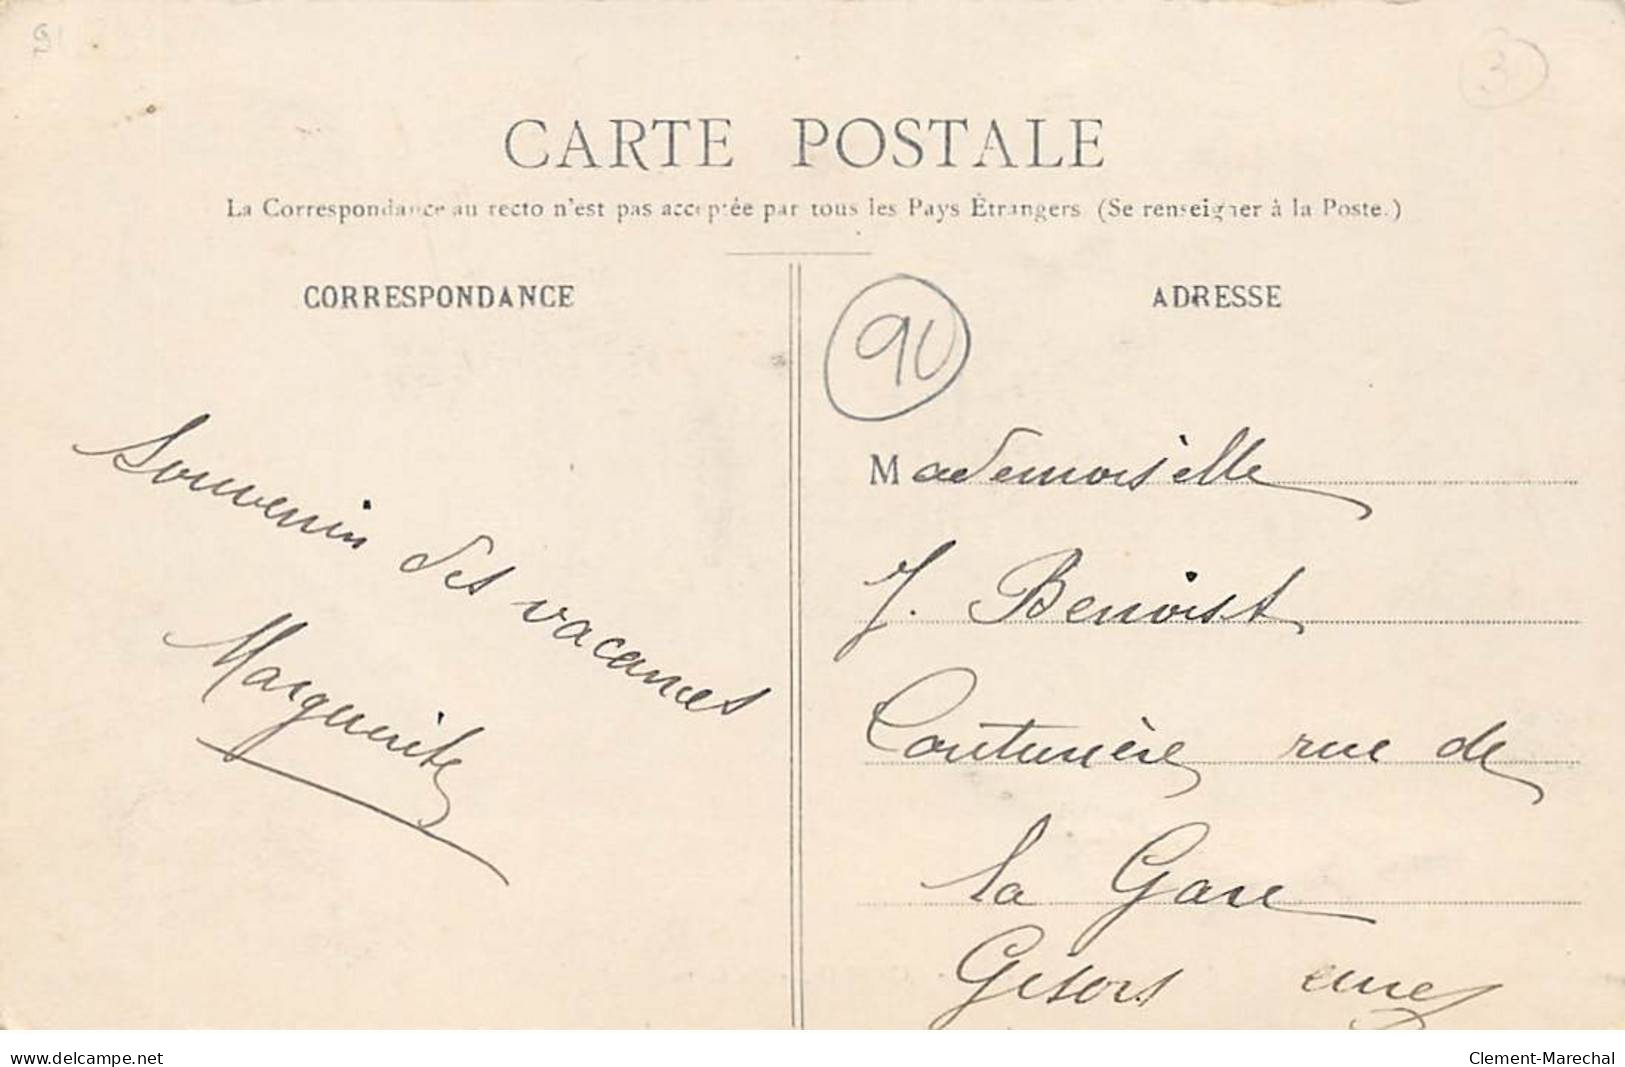 3
CARTE POSTALE
La Correspondance au recto n'est pas acceptée par tous les Pays Étrangers (Se renseigner à la Poste.)
CORRESPONDANCE
Souvenir des vacances
Marguerite
ADRESSE
90
Mademoiselle
J. Benoist
Couturière rue de
la Gare
Gisors eure
www.delcampe.net
Clement-Marechal